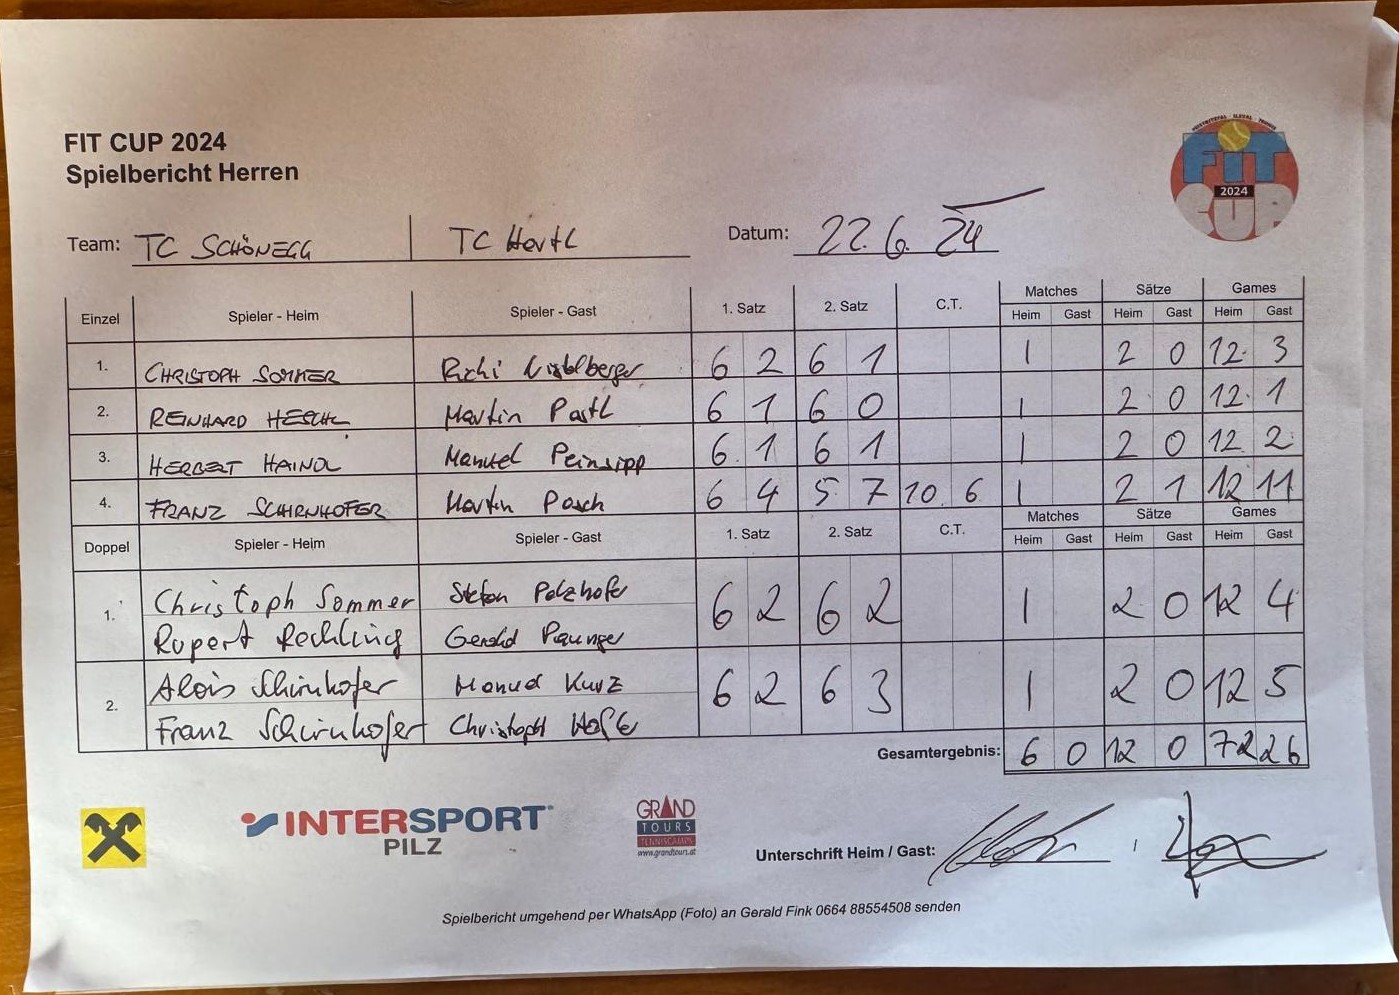 FIT CUP 2024
Spielbericht Herren
FIT
2024
CUP
Team: TC SCHÖNEGG TC Hartl Datum: 22.6.24
Einzel Spieler - Heim Spieler - Gast 1. Satz 2. Satz C.T. Matches Sätze Games
Heim Gast Heim Gast Heim Gast
1. CHRISTOPH SOMMER Richi 6 2 6 1 1 2 0 12 3
2. REINHARD HESCHL Martin Pastl 6 1 6 0 1 2 0 12 1
3. HERBERT HAINDL Manuel Peinsipp 6 1 6 1 1 2 0 12 2
4. FRANZ SCHIRNHOFER Martin Posch 6 4 5 7 10 6 1 2 1 12 11
Doppel Spieler - Heim Spieler - Gast 1. Satz 2. Satz C.T. Matches Sätze Games
Heim Gast Heim Gast Heim Gast
1. Christoph Sommer Stefan Polzhofer 6 2 6 2 1 2 0 12 4
Rupert Rechling Gerald Paunger
2. Alois Schirnhofer Manuel Kurz 6 2 6 3 1 2 0 12 5
Franz Schirnhofer Christoph
Gesamtergebnis: 6 0 12 0 72 26
INTERSPORT
PILZ
GRAND
TOURS
TENNISCAMPS
www.grandtours.at
Unterschrift Heim / Gast:
Spielbericht umgehend per WhatsApp (Foto) an Gerald Fink 0664 88554508 senden